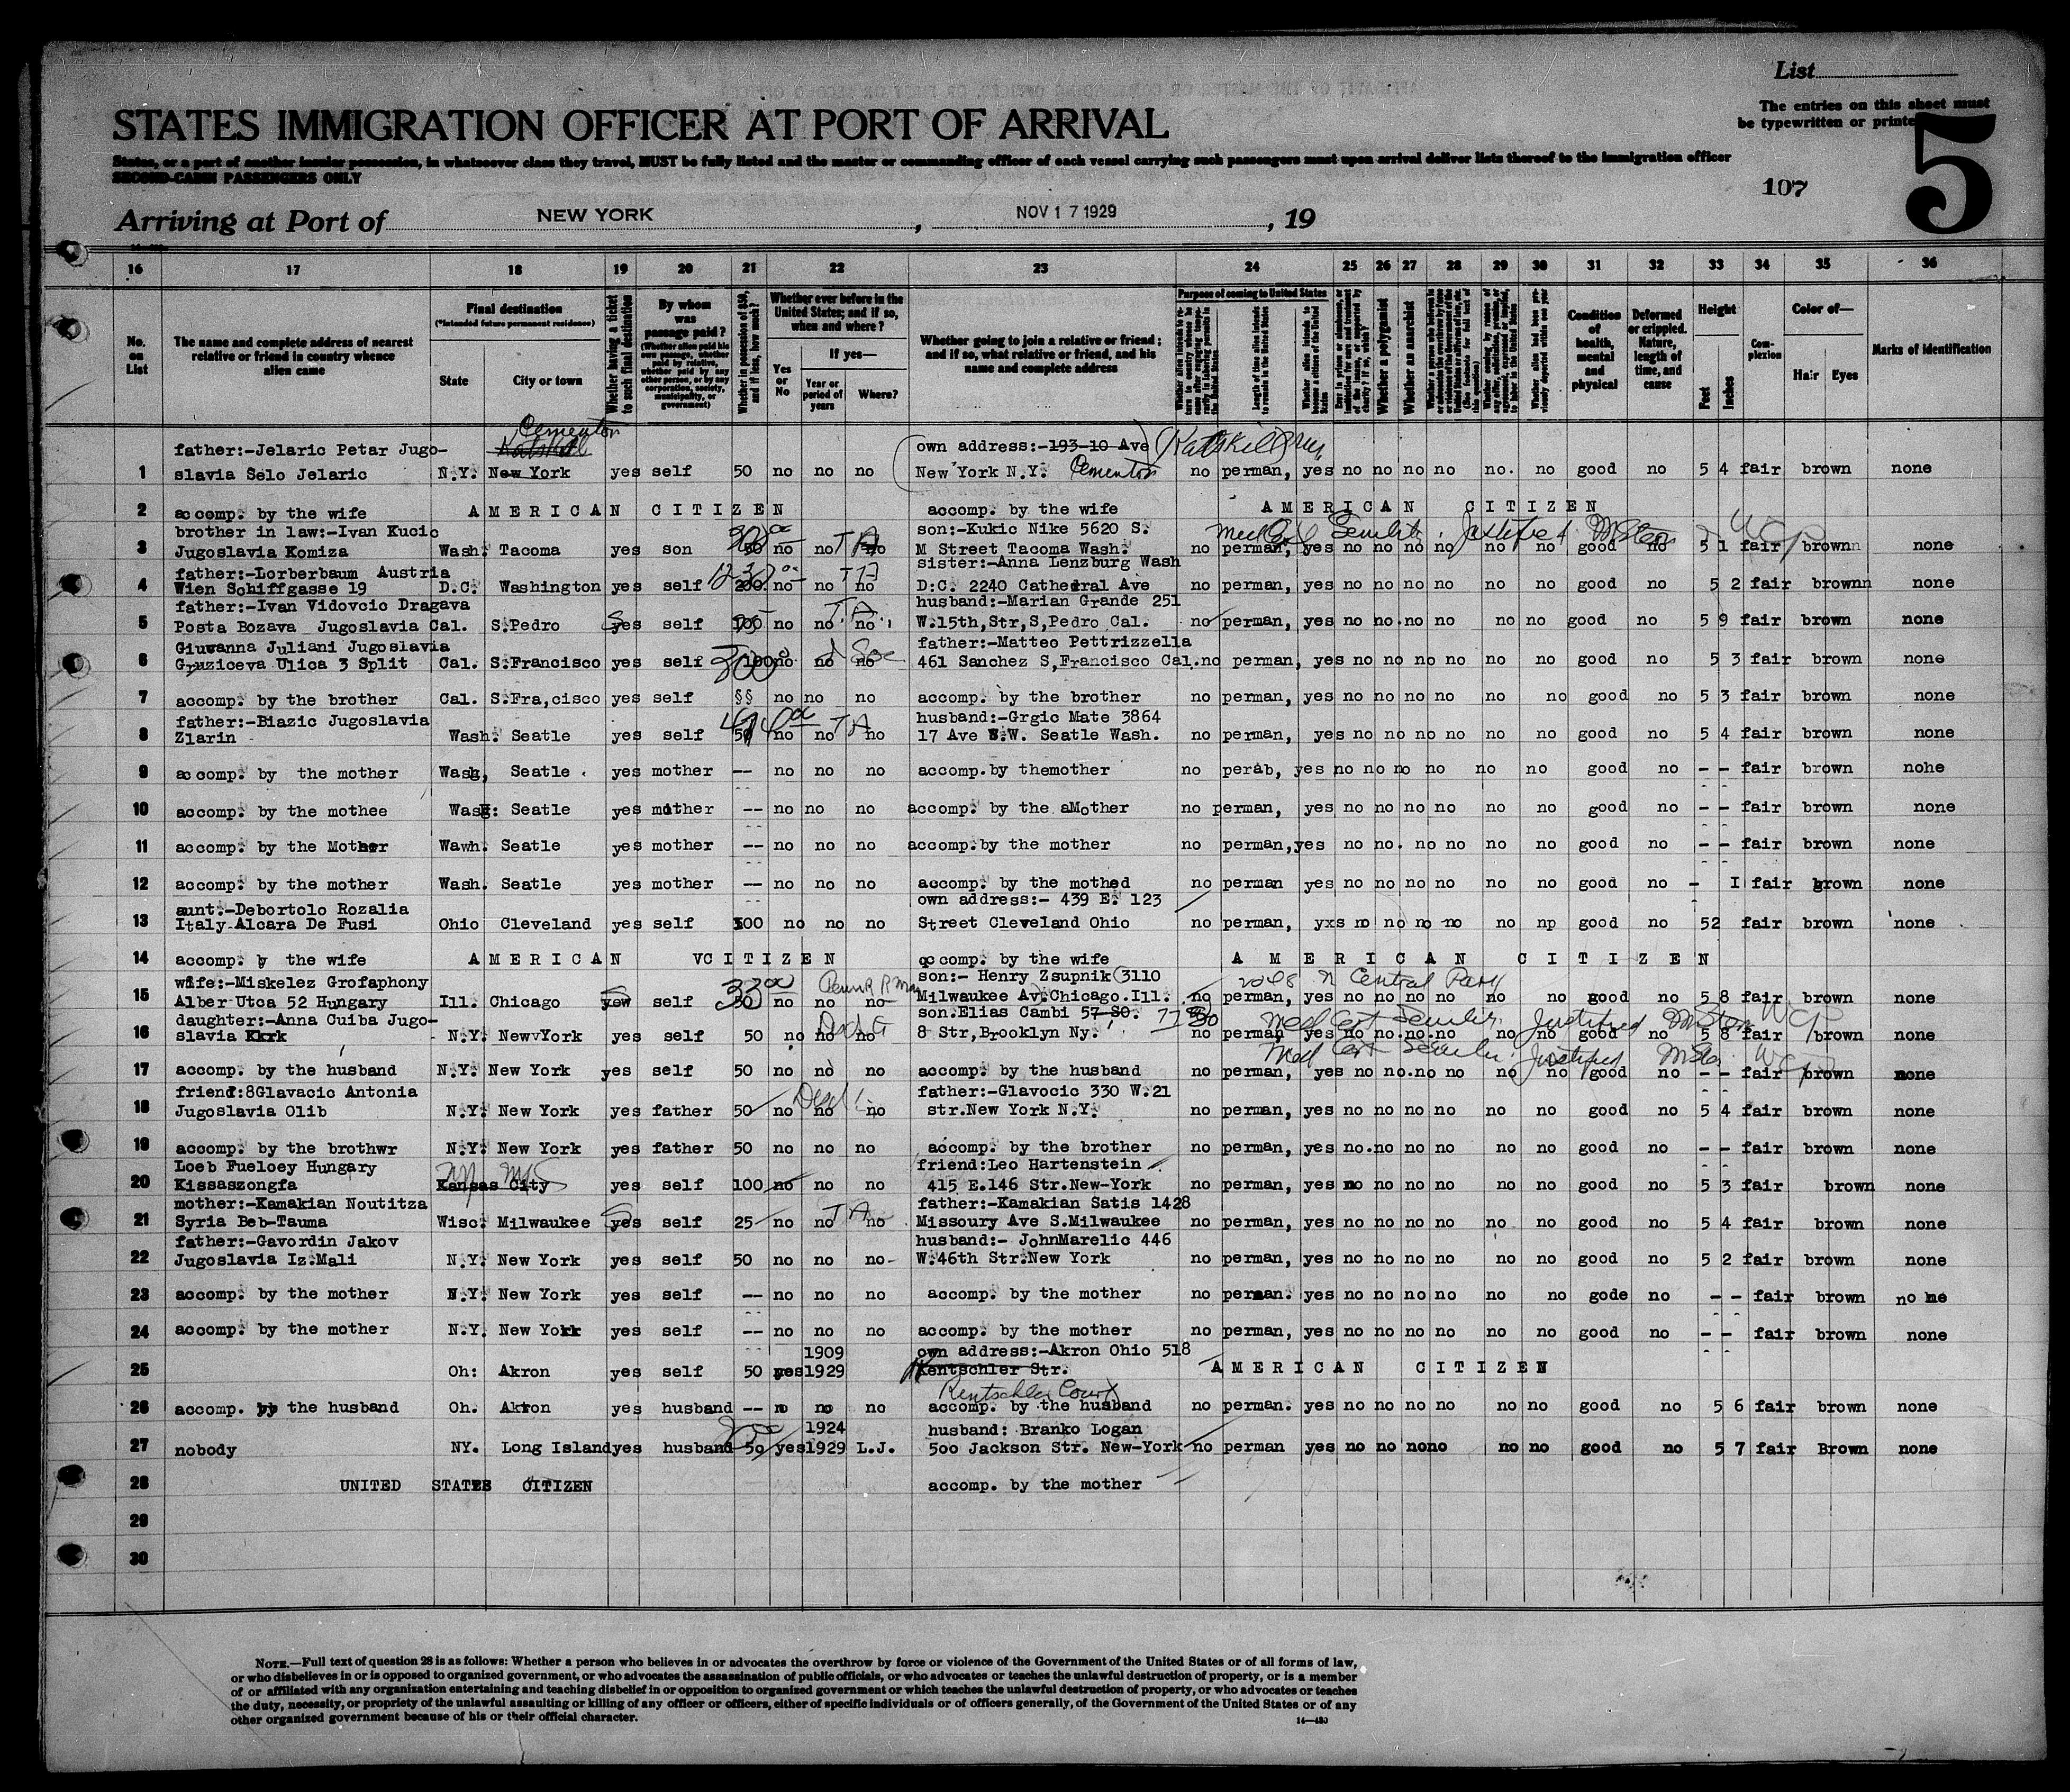 List
The entries on this sheet must
be typewritten or printe
5
STATES IMMIGRATION OFFICER AT PORT OF ARRIVAL
States, or a part of another insular possession, in whatsoever class they travel, MUST be fully listed and the master or commanding officer of each vessel carrying such passengers must upon arrival deliver lists thereof to the immigration officer
SECOND-CABIN PASSENGERS ONLY
107
Arriving at Port of NEW YORK , NOV 17 1929 , 19
16 17 18 19 20 21 22 23 24 25 26 27 28 29 30 31 32 33 34 35 36
No. on List
The name and complete address of nearest relative or friend in country whence alien came
Final destination
(*Intended future permanent residence)
State City or town
Whether having a ticket to such final destination
By whom was passage paid?
(Whether alien paid his own passage, whether paid by relative, whether paid by any other person, or by any corporation, society, municipality, or government)
Whether in possession of $50, and if less, how much?
Whether ever before in the United States; and if so, when and where?
Yes or No
If yes—
Year or period of years
Where?
Whether going to join a relative or friend; and if so, what relative or friend, and his name and complete address
Purpose of coming to United States
Length of time alien intends to remain in the United States
Whether alien intends to become a citizen of the United States
Whether a polygamist
Whether an anarchist
Condition of health, mental and physical
Deformed or crippled. Nature, length of time, and cause
Height
Feet Inches
Complexion
Color of—
Hair Eyes
Marks of identification
Cementon
father:-Jelaric Petar Jugo- own address:-193-10 Ave
1 slavia Selo Jelaric N.Y. New York yes self 50 no no no New York N.Y. Cementon no perman, yes no no no no no. no good no 5 4 fair brown none
2 accomp. by the wife AMERICAN CITIZEN accomp. by the wife AMERICAN CITIZEN
brother in law:-Ivan Kucic son:-Kukic Nike 5620 S.
3 Jugoslavia Komiza Wash. Tacoma yes son 50 no no no TA M Street Tacoma Wash. no perman, yes no no no no no no good no 5 1 fair brown none
father:-Lorberbaum Austria sister:-Anna Lenzburg Wash
4 Wien Schiffgasse 19 D.C. Washington yes self 200. no no no D.C. 2240 Cathedral Ave no perman, yes no no no no no no good no 5 2 fair brownn none
father:-Ivan Vidovcic Dragava husband:-Marian Grande 251
5 Posta Bozava Jugoslavia Cal. S.Pedro yes self no no no TA W.15th,Str,S,Pedro Cal. no perman, yes no no.no no no no good no 5 9 fair brown none
Giuvanna Juliani Jugoslavia father:-Matteo Pettrizzella
6 Gruziceva Ulica 3 Split Cal. S.Francisco yes self 100 no no no 461 Sanchez S,Francisco Cal.no perman, yes no no no no no no good no 5 3 fair brown none
7 accomp. by the brother Cal. S.Fra,cisco yes self §§ no no no accomp. by the brother no perman, yes no no no no no no good no 5 3 fair brown none
father:-Biazic Jugoslavia husband:-Grgic Mate 3864
8 Zlarin Wash. Seatle yes self 50 no no no TA 17 Ave S.W. Seatle Wash. no perman, yes no no no no no no good no 5 4 fair brown none
9 accomp. by the mother Wash, Seatle yes mother -- no no no accomp.by themother no perab, yes no no no no no no good no -- fair brown nohe
10 accomp. by the mothee Wash: Seatle yes mother -- no no no accomp. by the aMother no perman, yes no no no no no no good no -- fair brown none
11 accomp. by the Mother Wawh. Seatle yes mother -- no no no accomp.by the mother no perman,yes no no. no no no no good no -- fair brown none
12 accomp. by the mother Wash. Seatle yes mother -- no no no accomp. by the mothed no perman yes no no no no no no good no - I fair brown none
aunt:-Debortolo Rozalia own address:- 439 E. 123
13 Italy-Alcara De Fusi Ohio Cleveland yes self 100 no no no Street Cleveland Ohio no perman, yxs no no no no no np good no 52 fair brown none
14 accomp. by the wife AMERICAN VCITIZEN accomp. by the wife AMERICAN CITIZEN
wife:-Miskelez Grofaphony son:- Henry Zsupnik 3110 2048 N Central Park
15 Alber Utca 52 Hungary Ill. Chicago yew self 50 no no no Milwaukee Av.Chicago.Ill. no perman, yes no no no no no no good no 5 8 fair brown none
daughter:-Anna Cuiba Jugo- son.Elias Cambi 57 SO.
16 slavia Kkrk N.Y. NewvYork yes self 50 no no no 8 Str,Brooklyn Ny. no perman yes no no.no.no no no good no 5 8 fair brown none
17 accomp. by the husband N.Y. New York yes self 50 no no no accomp. by the husband no perman, yes no no.no no no no good no -- fair brown none
friend:8Glavacic Antonia father:-Glavocic 330 W.21
18 Jugoslavia Olib N.Y. New York yes father 50 no no no str.New York N.Y. no perman, yes no no no no no no good no 5 4 fair brown none
19 accomp. by the brothwr N.Y. New York yes father 50 no no no accomp. by the brother no perman, yes no.no no no no no good no -- fair brown none
Loeb Fueloey Hungary friend:Leo Hartenstein
20 Kissaszongfa Kansas City yes self 100 no no no 415 E.146 Str.New-York no perman, yes no no no no no no good no 5 3 fair brown none
mother:-Kamakian Noutitza father:-Kamakian Satis 1428
21 Syria Beb-Tauma Wisc. Milwaukee yes self 25 no no no TA Missoury Ave S.Milwaukee no perman, yes no no no no no no good no 5 4 fair brown none
father:-Gavordin Jakov husband:- JohnMarelic 446
22 Jugoslavia Iz.Mali N.Y. New York yes self 50 no no no- W.46th Str.New York no perman, yes no no no no no no good no 5 2 fair brown none
23 accomp. by the mother N.Y. New York yes self -- no no no accomp. by the mother no perman. yes no no no no no no gode no -- fair brown no ne
24 accomp. by the mother N.Y. New York yes self -- no no no accomp. by the mother no perman, yes no no no no no no good no -- fair brown none
1909 own address:-Akron Ohio 518
25 Oh: Akron yes self 50 yes1929 Kentschler Str. AMERICAN CITIZEN
Rentschler Court
26 accomp. by the husband Oh. Akron yes husband -- n no no accomp. by the husband no perman. yes no no no no no no good no 5 6 fair brown none
1924 husband: Branko Logan
27 nobody NY. Long Islandyes husband 50 yes1929 L.J. 500 Jackson Str. New-York no perman yes no no nono no no good no 5 7 fair Brown none
28 UNITED STATES CITIZEN accomp. by the mother
29
30
NOTE.—Full text of question 28 is as follows: Whether a person who believes in or advocates the overthrow by force or violence of the Government of the United States or of all forms of law,
or who disbelieves in or is opposed to organized government, or who advocates the assassination of public officials, or who advocates or teaches the unlawful destruction of property, or is a member
of or affiliated with any organization entertaining and teaching disbelief in or opposition to organized government or which teaches the unlawful destruction of property, or who advocates or teaches
the duty, necessity, or propriety of the unlawful assaulting or killing of any officer or officers, either of specific individuals or of officers generally, of the Government of the United States or of any
other organized government because of his or their official character.
14—430